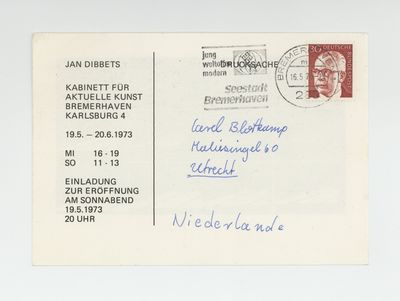 JAN DIBBETS
KABINETT FÜR
AKTUELLE KUNST
BREMERHAVEN
KARLSBURG 4
19.5. – 20.6.1973
MI 16 - 19
SO 11 - 13
EINLADUNG
ZUR ERÖFFNUNG
AM SONNABEND
19.5.1973
20 UHR
DRUCKSACHE
jung
weltoffen
modern
Seestadt
Bremerhaven
BREMERH
16.5.7
30 DEUTSCHE BUNDESPOST
Carel Blotkamp
Maliesingel 60
Utrecht
Niederlande